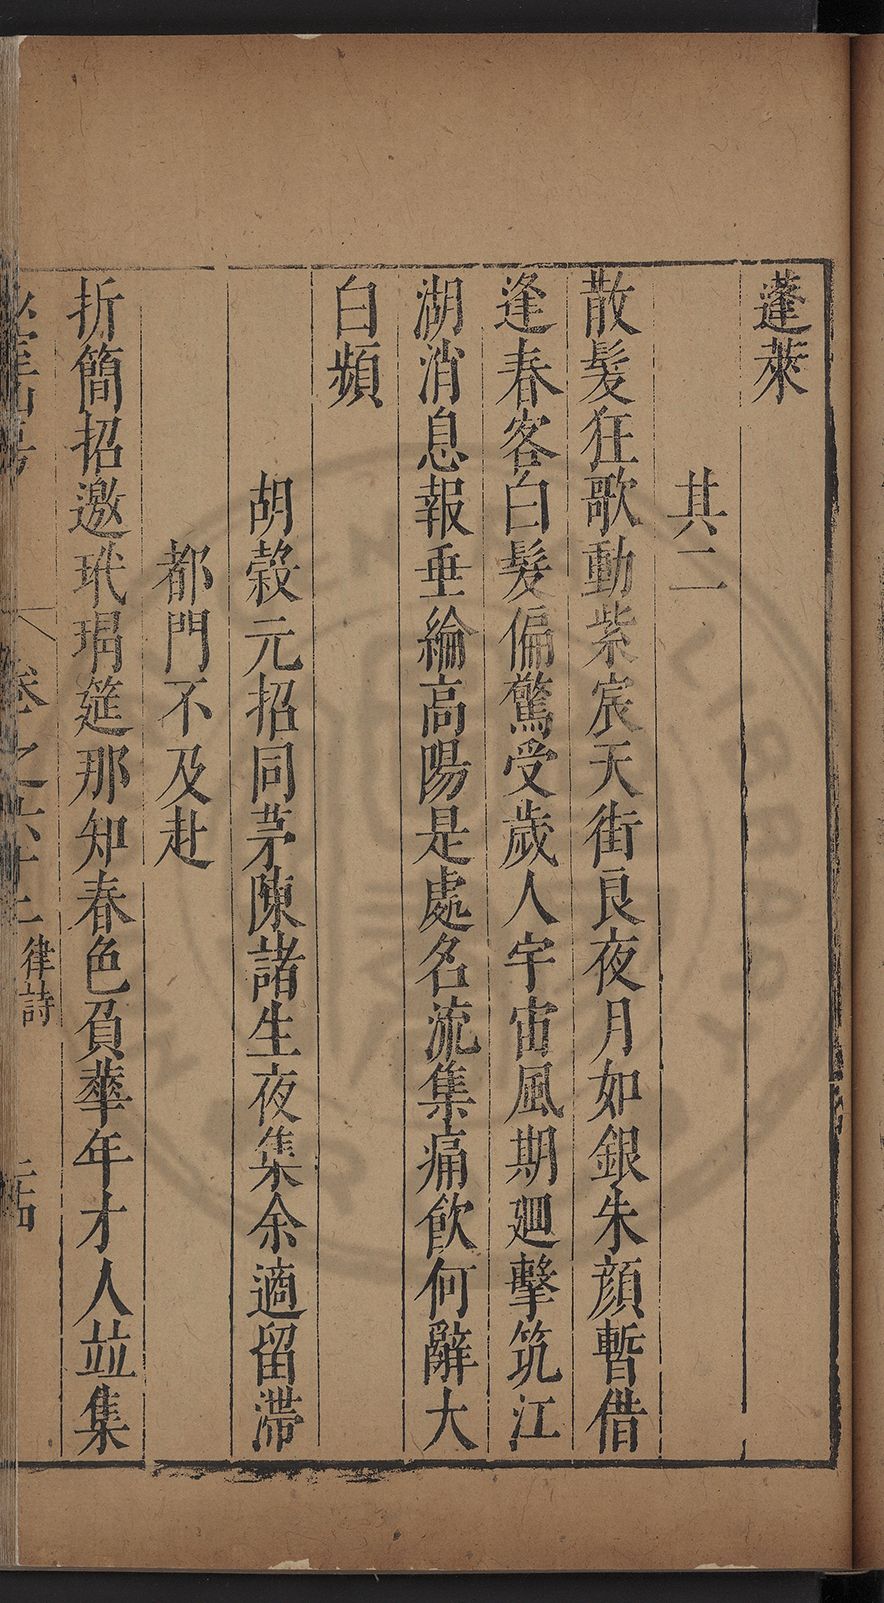 蓬萊
其二
散髮狂歌動紫宸天街良夜月如銀朱顔暫借
逢春客白髮偏驚受歲人宇宙風期廻擊筑江
湖消息報垂綸高陽是處名流集痛飲何辭大
白頻
胡穀元招同茅陳諸生夜集余適留滯
都門不及赴
折簡招邀玳瑁筵那知春色負華年才人並集
卷之六十二 律詩